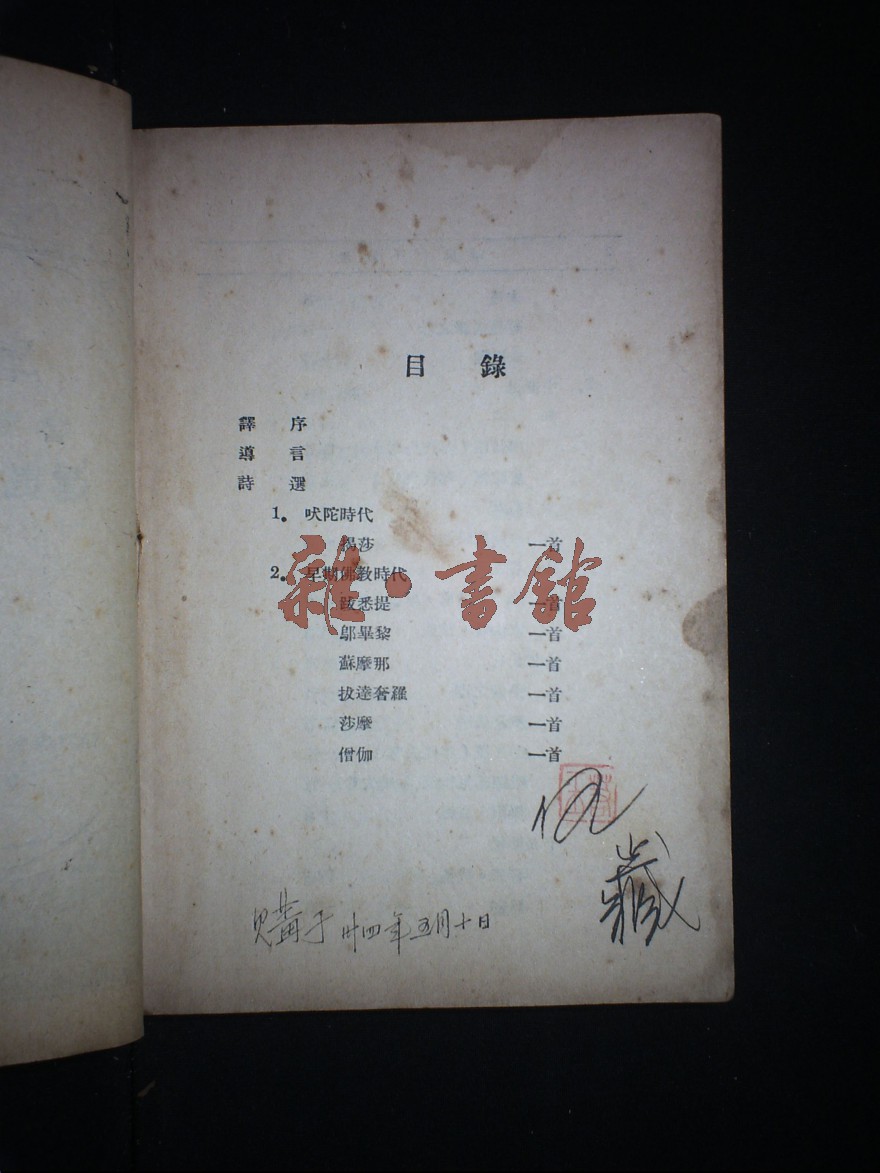 目錄
譯序
導言
詩選
1. 吠陀時代
莎 一首
2. 早期佛教時代
跋悉提 一首
鄔畢黎 一首
蘇摩那 一首
拔達奢羅 一首
莎摩 一首
僧伽 一首
雜·書館
藏
購于卅四年五月十日